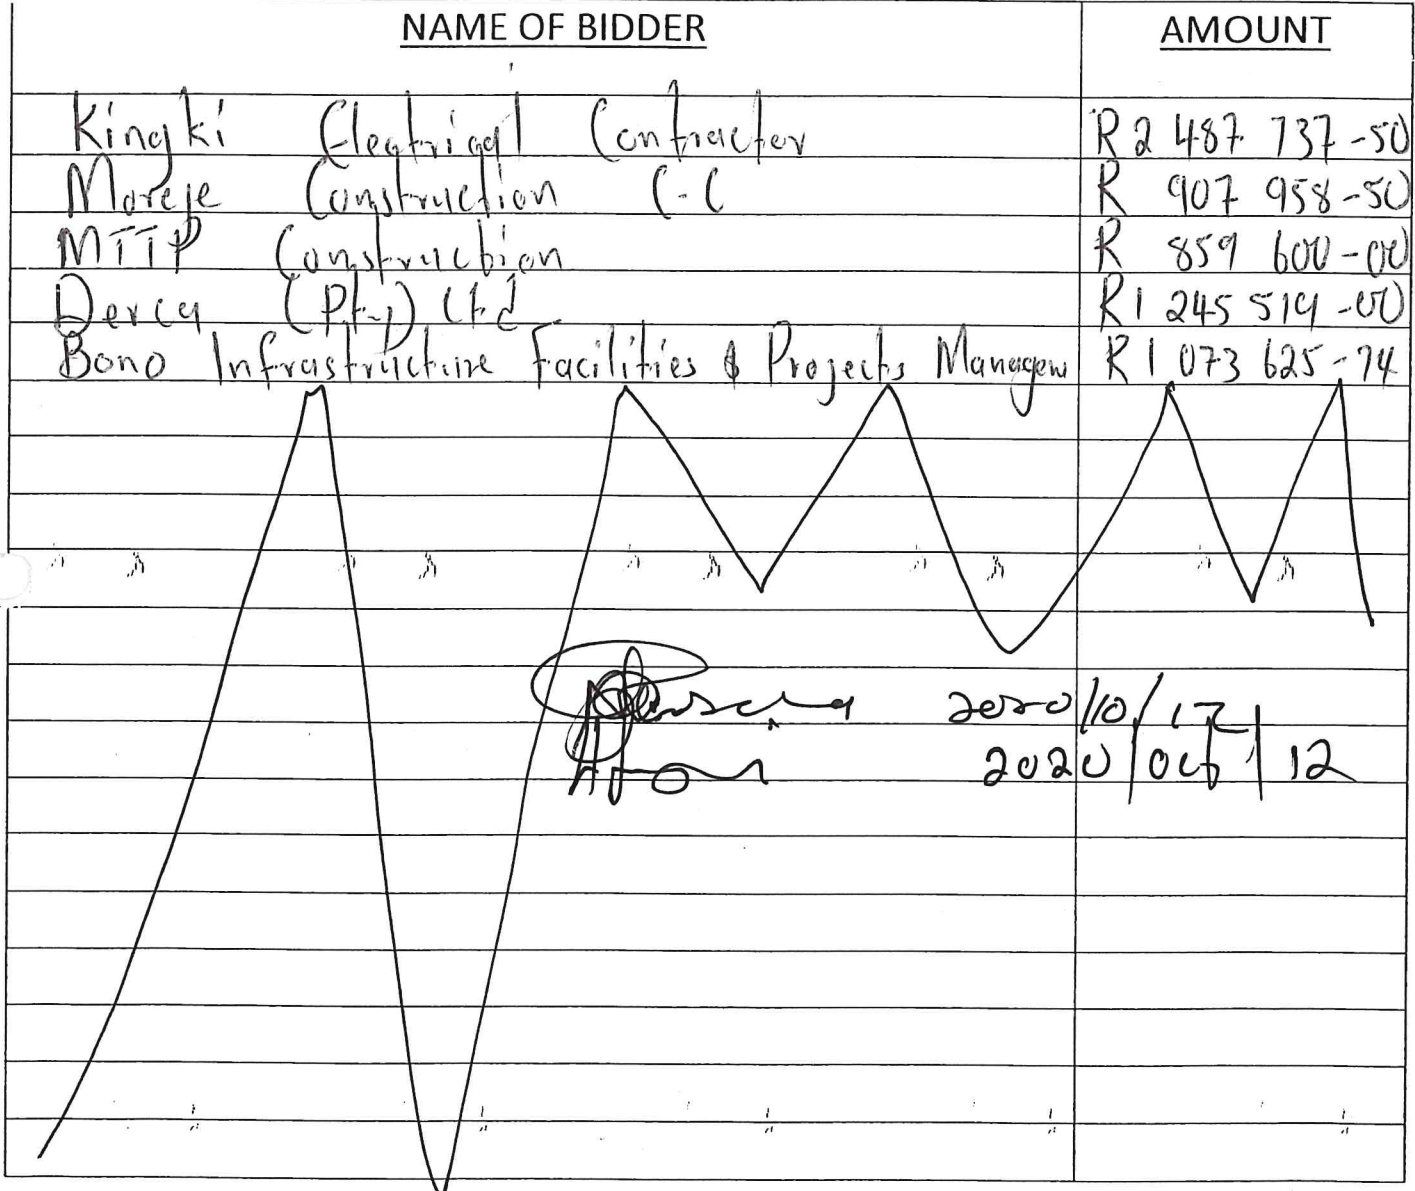 NAME OF BIDDER AMOUNT
Kingki Electrical Contractor R 2 487 737-50
Moreje Construction C-C R 907 958-50
MTTP Construction R 859 600-00
Derca (Pty) Ltd R 1 245 519-00
Bono Infrastructure Facilities & Projects Managem R 1 073 625-74
2020/10/12
2020/Oct/12